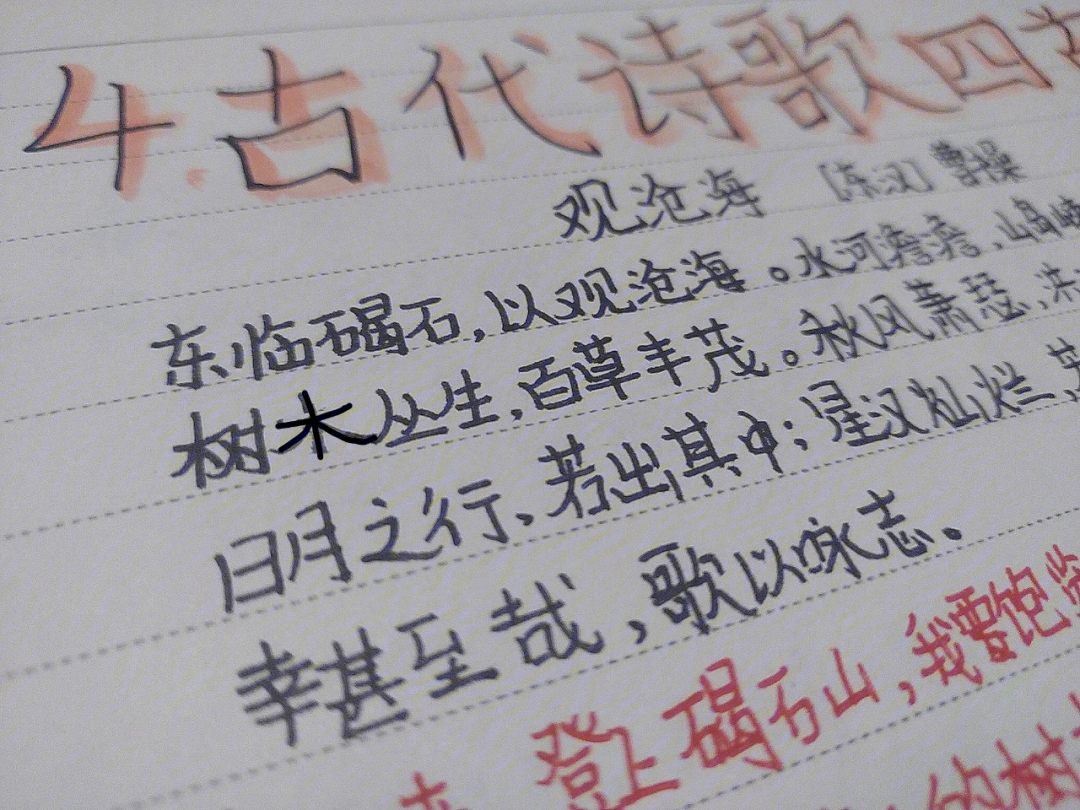 4.古代诗歌四首
观沧海 [东汉] 曹操
东临碣石,以观沧海。水河澹澹,山岛
树木丛生,百草丰茂。秋风萧瑟,洪
日月之行、若出其中;星汉灿烂,若
幸甚至哉,歌以咏志。
登上碣石山,我要饱览
的树